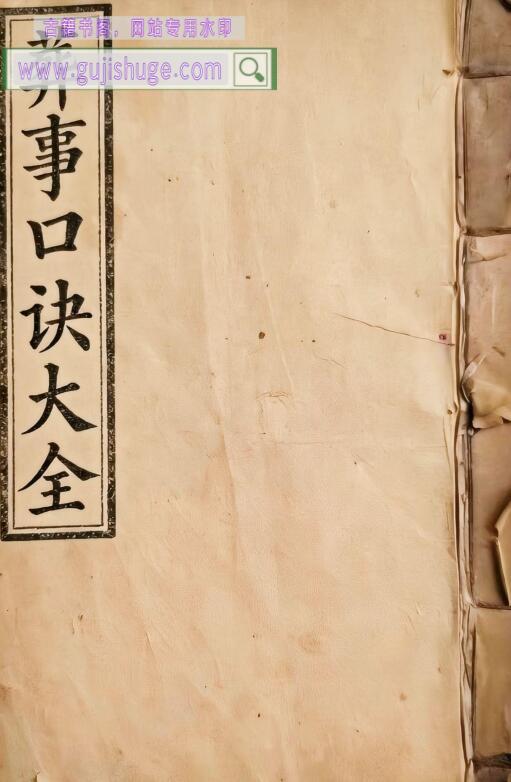 古籍书阁，网站专用水印
www.gujishuge.com
葬事口诀大全